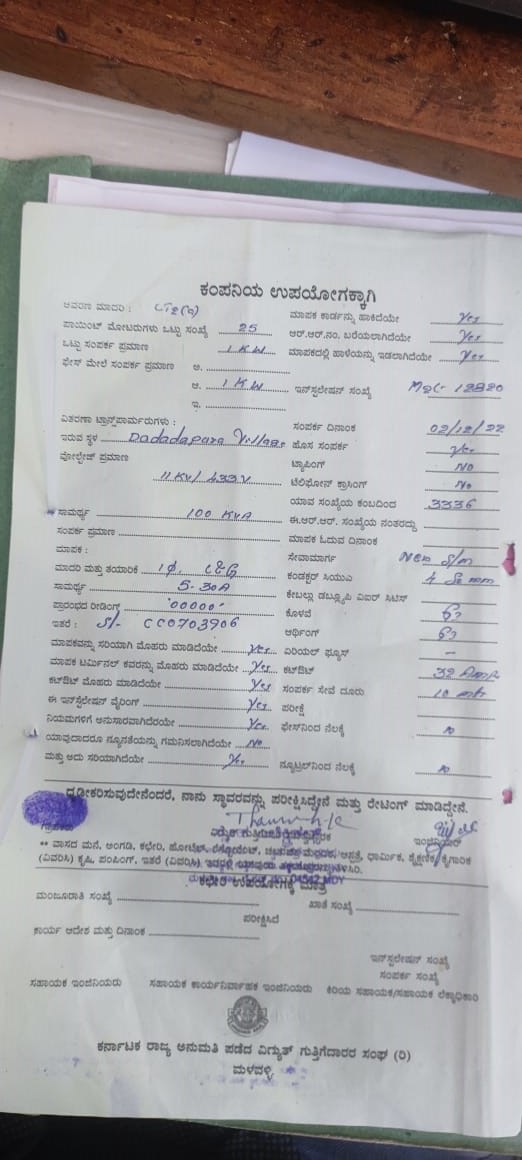 ಕಂಪನಿಯ ಉಪಯೋಗಕ್ಕಾಗಿ
ಆವರಣ ಮಾದರಿ : LT2(a) ಮಾಪಕ ಕಾರ್ಡನ್ನು ಹಾಕಿದೆಯೇ Yes
ಪಾಯಿಂಟ್ ಮೋಟರುಗಳು ಒಟ್ಟು ಸಂಖ್ಯೆ 25 ಆರ್.ಆರ್.ನಂ. ಬರೆಯಲಾಗಿದೆಯೇ Yes
ಒಟ್ಟು ಸಂಪರ್ಕ ಪ್ರಮಾಣ 1 KW ಮಾಪಕದಲ್ಲಿ ಹಾಳೆಯನ್ನು ಇಡಲಾಗಿದೆಯೇ Yes
ಫೇಸ್ ಮೇಲೆ ಸಂಪರ್ಕ ಪ್ರಮಾಣ ಅ.
ಆ. 1 KW ಇನ್‌ಸ್ಟಲೇಷನ್ ಸಂಖ್ಯೆ
ಇ.
ವಿತರಣಾ ಟ್ರಾನ್ಸ್‌ಪಾರ್ಮರುಗಳು : ಸಂಪರ್ಕ ದಿನಾಂಕ 02/12/22
ಇರುವ ಸ್ಥಳ Dadadapura Village ಹೊಸ ಸಂಪರ್ಕ Yes
ವೋಲ್ಟೇಜ್ ಪ್ರಮಾಣ ಟ್ಯಾಪಿಂಗ್ NO
11 KV/ 433V ಟೆಲಿಫೋನ್ ಕ್ರಾಸಿಂಗ್ No
ಯಾವ ಸಂಖ್ಯೆಯ ಕಂಬದಿಂದ 3336
ಸಾಮರ್ಥ್ಯ 100 KVA ಈ.ಆರ್.ಆರ್. ಸಂಖ್ಯೆಯ ನಂತರದ್ದು
ಸಂಪರ್ಕ ಪ್ರಮಾಣ ಮಾಪಕ ಓದುವ ದಿನಾಂಕ
ಮಾಪಕ : ಸೇವಾಮಾರ್ಗ New S/m
ಮಾದರಿ ಮತ್ತು ತಯಾರಿಕೆ 1φ, L&G ಕಂಡಕ್ಟರ್ ಸಿಯುಎ 4 Sq mm
ಸಾಮರ್ಥ್ಯ 5-30A
ಪ್ರಾರಂಭದ ರೀಡಿಂಗ್ '00000' ಕೊಳವೆ
ಇತರೆ : S/- CC0703906 ಆರ್ಥಿಂಗ್
ಮಾಪಕವನ್ನು ಸರಿಯಾಗಿ ಮೊಹರು ಮಾಡಿದೆಯೇ Yes ಏರಿಯಲ್ ಫ್ಯೂಸ್ –
ಮಾಪಕ ಟರ್ಮಿನಲ್ ಕವರನ್ನು ಮೊಹರು ಮಾಡಿದೆಯೇ Yes ಕಟ್‌ಔಟ್ 32 Amp
ಕಟ್‌ಔಟ್ ಮೊಹರು ಮಾಡಿದೆಯೇ Yes ಸಂಪರ್ಕ ಸೇವೆ ದೂರು 10 mtr
ಈ ಇನ್‌ಸ್ಟಲೇಷನ್ ವೈರಿಂಗ್ Yes ಪರೀಕ್ಷೆ
ನಿಯಮಗಳಿಗೆ ಅನುಸಾರವಾಗಿದೆಯೇ Yes ಫೇಸ್‌ನಿಂದ ನೆಲಕ್ಕೆ
ಯಾವುದಾದರೂ ನ್ಯೂನತೆಯನ್ನು ಗಮನಿಸಲಾಗಿದೆಯೇ No
ಮತ್ತು ಅದು ಸರಿಯಾಗಿದೆಯೇ Yes ನ್ಯೂಟ್ರಲ್‌ನಿಂದ ನೆಲಕ್ಕೆ
ದೃಢೀಕರಿಸುವುದೇನೆಂದರೆ, ನಾನು ಸ್ಥಾವರವನ್ನು ಪರೀಕ್ಷಿಸಿದ್ದೇನೆ ಮತ್ತು ರೇಟಿಂಗ್ ಮಾಡಿದ್ದೇನೆ.
ಇಂಜಿನಿಯರ್
** ವಾಸದ ಮನೆ, ಅಂಗಡಿ, ಕಛೇರಿ, ಹೋಟೆಲ್, ರೆಸ್ಟೋರೆಂಟ್, ಆಸ್ಪತ್ರೆ, ಧಾರ್ಮಿಕ, ಶೈಕ್ಷಣಿಕ, ಕೈಗಾರಿಕ
(ವಿವರಿಸಿ) ಕೃಷಿ, ಪಂಪಿಂಗ್, ಇತರೆ (ವಿವರಿಸಿ)
ಕಛೇರಿ ಉಪಯೋಗಕ್ಕೆ ಮಾತ್ರ
ಮಂಜೂರಾತಿ ಸಂಖ್ಯೆ ಖಾತೆ ಸಂಖ್ಯೆ
ಪರೀಕ್ಷಿಸಿದೆ
ಕಾರ್ಯ ಆದೇಶ ಮತ್ತು ದಿನಾಂಕ
ಇನ್‌ಸ್ಟಲೇಷನ್ ಸಂಖ್ಯೆ
ಸಂಪರ್ಕ ಸಂಖ್ಯೆ
ಸಹಾಯಕ ಇಂಜಿನಿಯರು ಸಹಾಯಕ ಕಾರ್ಯನಿರ್ವಾಹಕ ಇಂಜಿನಿಯರು ಕಿರಿಯ ಸಹಾಯಕ/ಸಹಾಯಕ ಲೆಕ್ಕಾಧಿಕಾರಿ
ಕರ್ನಾಟಕ ರಾಜ್ಯ ಅನುಮತಿ ಪಡೆದ ವಿದ್ಯುತ್ ಗುತ್ತಿಗೆದಾರರ ಸಂಘ (ರಿ)
ಮಳವಳ್ಳಿ